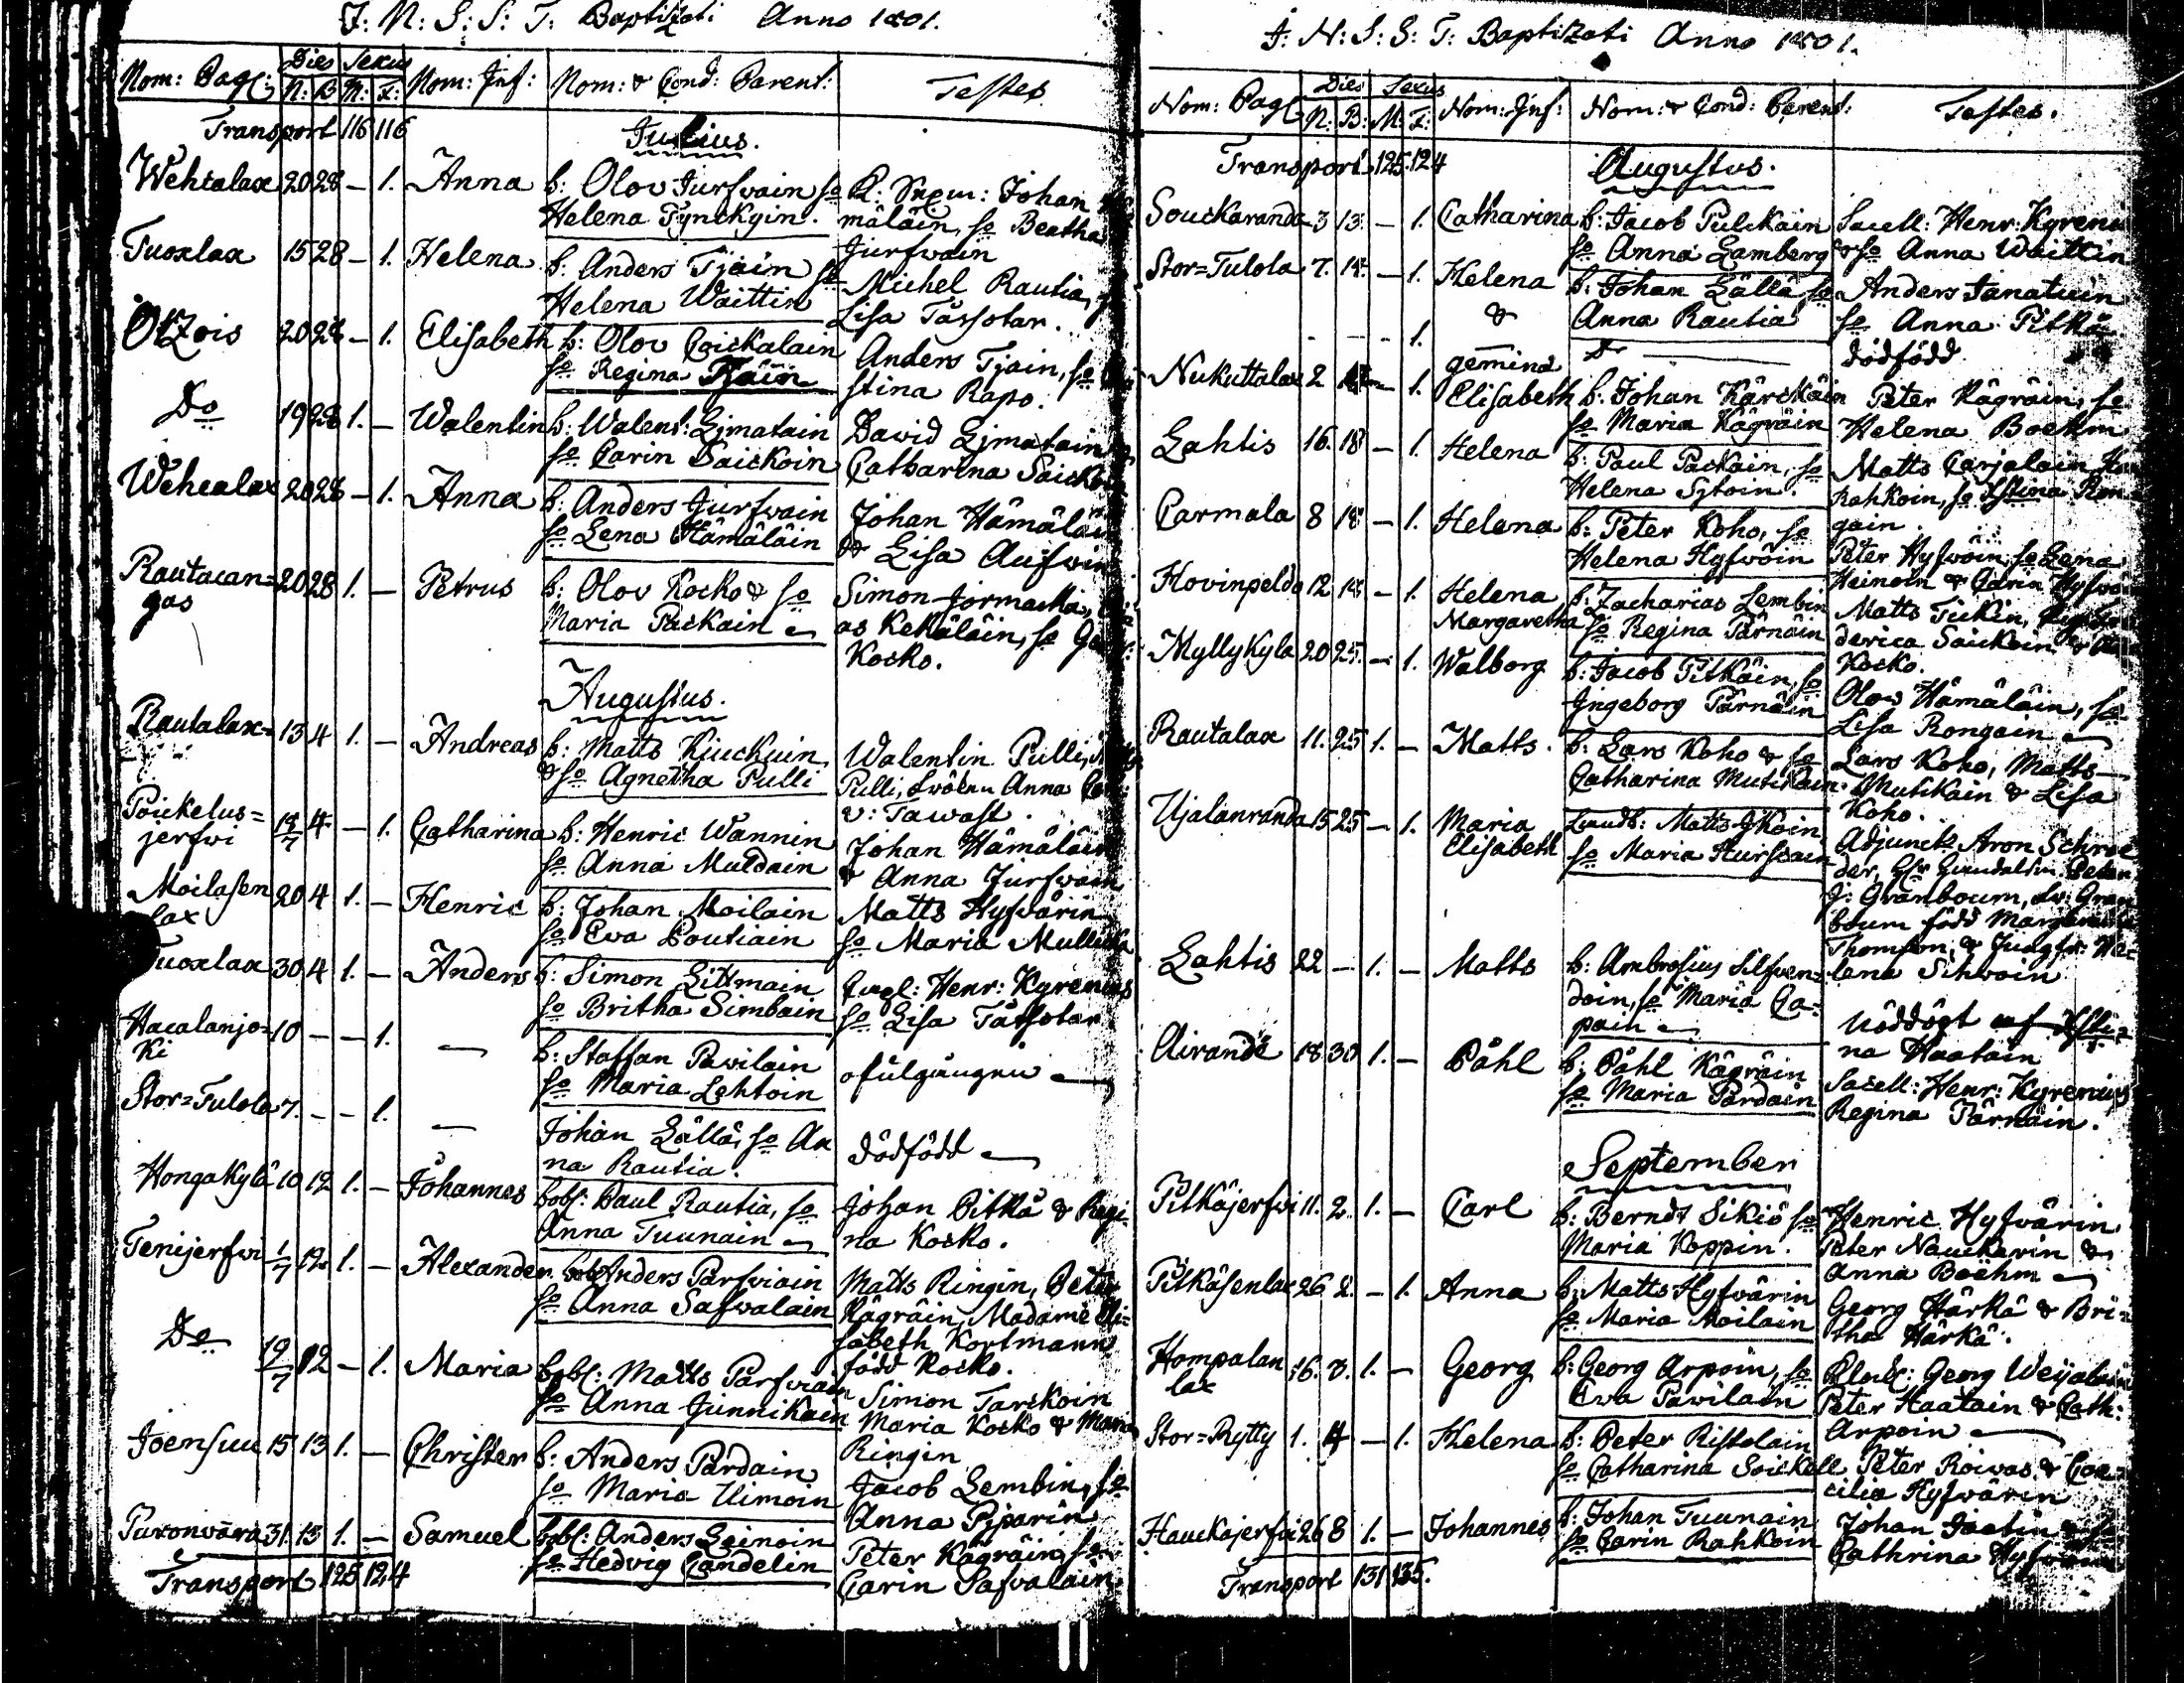 J: N: S: S: T: Baptizati Anno 1801.
Nom: Pag: Dies Sexus Nom: Inf: Nom: & Cond: Parent: Testes
N: B M: F:
Transport 116 116 Julius.
Wehtalax 20 28 – 1. Anna b: Olov Jurfvain so
Helena Tynckyin.
Johan
mäläin, so Beatha
Jurfvain
Tuoxlax 15 28 – 1. Helena b: Anders Tjäin so
Helena Waittin
Michel Rautia,
Lisa Tassotar.
Otzois 20 28 – 1. Elisabeth b: Olov Coickalain
so Regina Tjäin
Anders Tjain, so
stina Rapo.
Do 19 28 1. – Walentin b: Walent: Ljmatain
so Carin Saickoin
David Ljmatain
Catharina
Wehcalax 20 28 – 1. Anna b: Anders Jurfvain
so Lena Hämäläin
Johan Hämäläin
& Lisa
Rautacan=
gas 20 28 1. – Petrus b: Olov Kocko & so
Maria Packain
Simon Jormacka,
as Kekäläin, so
Kocko.
Augustus.
Rautalax 13 4 1. – Andreas b: Matts Kiuckuin
& so Agnetha Pulli
Walentin Pulli,
Pulli, Anna
v: Tawast.
Poickelus=
jerfvi 4 – 1. Catharina b: Henric Wannin
so Anna Muldain
Johan Hämäläin
& Anna Jurfvain
Moilasen
lax 20 4 1. – Henric b: Johan Moilain
so Eva Poutiain
Matts Hyfvärin
so Maria
Tuoxlax 30 4 1. – Anders b: Simon Littmain
so Britha Simbain
Henr: Kyrenius
so Lisa Tassotar
Hacalanjo=
ki 10 – – 1. – b: Staffan Pavilain
so Maria Lehtoin
ofulgången
Stor=Tulola 7. – – 1. – Johan Lällä, so An
na Rautia.
dödfödd
Hongakylä 10 12 1. – Johannes bobl: Paul Rautia, so
Anna Tuunain
Johan Pitkä & Regi-
na Kocko.
Tenijerfvi 1/7 12 1. – Alexander bobl: Anders Parfviain
so Anna Safvalain
Matts Ringin, Peter
Kägräin, Madame Eli=
sabeth Kortmann
född Kocko.
Do 19/7 12 – 1. Maria bobl: Matts Parfviain
so Anna Junnikain
Simon Tarckoin
Maria Kocko & Maria
Ringin
Joensuu 15 13 1. – Christer b: Anders Pardain
so Maria Uimoin
Jacob Lembin, so
Anna Piparin
Puxonvara 31 13 1. – Samuel bobl: Anders Leinoin
so Hedvig Candelin
Peter Kägräin, so
Carin Safvalain.
Transport 125 124
J: N: S: S: T: Baptizati Anno 1801.
Nom: Pag: Dies Sexus Nom: Inf: Nom: & Cond: Parent: Testes.
N: B: M: F:
Transport 125 124 Augustus.
Souckaranda 3 13 – 1. Catharina b: Jacob Pulckain
so Anna Lamberg
Sacell: Henr: Kyrenius
& so Anna Waittin
Stor=Tulola 7. 14 – 1. Helena b: Johan Lällä so
Anna Rautia
Anders Tanatuin
so Anna Pitkä
- - - 1. &
gemina Do dödfödd.
Nukuttalax 2 – 1. Elisabeth b: Johan Kärckäin
so Maria Kägräin
Peter Kägräin, so
Helena Boehm
Lahtis 16. 18 – 1. Helena b: Paul Packain, so
Helena Sytoin.
Matts Carjalain
Rahkoin, so Ron
gain.
Carmala 8 18 – 1. Helena b: Peter Koho, so
Helena Hyfvöin
Peter Hyfvöin, so Lena
Heinoin & Carin Hyfvöin
Hovinpeldo 12 18 – 1. Helena
Margaretha b: Zacharias Lembin
so Regina Pärnäin
Matts Tickin,
derica Saickoin &
Kocko.
Myllykylä 20 25. – 1. Walborg b: Jacob Pitkäin, so
Ingeborg Pärnäin
Olov Hämäläin, so
Lisa Rongain
Rautalax 11. 25 1. – Matts. b: Lars Koho & so
Catharina Mutikain.
Lars Koho, Matts
Mutikain & Lisa
Koho.
Ujalanranda 15 25 – 1. Maria
Elisabeth Landb: Matts Ikoin
so Maria Hurskain
Adjunct: Aron Schroe
der, Peter
J: Granboum, Gran
boum född Margareta
Thomson, & Jungfr: He=
lena Schwoin
Lahtis 22 – 1. – Matts b: Ambrosius Silfven=
doin, so Maria Ca=
pain
Nöddöpt af
na Haatain
Airandé 18 30 1. – Påhl b: Påhl Kägräin
so Maria Pardain
Sacell: Henr: Kyrenius
Regina Pärnäin.
September
Pitkäjerfvi 11. 2. 1. – Carl b: Berndt Sikiö so
Maria Koppin.
Henric Hyfvärin
Peter Nauckarin &
Anna Boëhm
Pitkäsenlax 26 2. – 1. Anna b: Matts Hyfvärin
so Maria Moilain
Georg Härkä & Bri=
tha Härkä.
Hompalan
lax 16. 1. – Georg b: Georg Arpoin, so
Eva Pavilain
Georg
Peter Haatain & Cath:
Arpoin
Stor=Rytty 1. 4 – 1. Helena b: Peter Ristolain
so Catharina
Peter Roivas &
cilia Hyfvärin
Hauckajerfvi 26 8 1. – Johannes b: Johan Tuunain
so Carin Rahkoin
Johan
Cathrina
Transport 131 135.